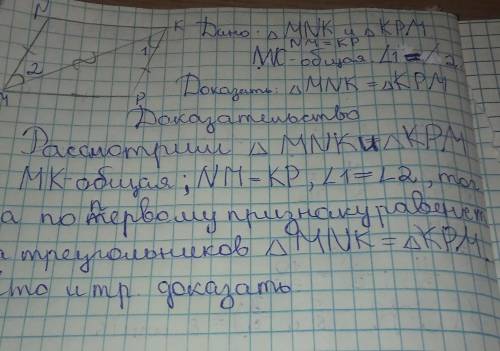 N
K
1
2
M
P
Дано: △MNK и △KPM
NM = KP
MK-общая ∠1=∠2
Доказать: △MNK=△KPM
Доказательство
Рассмотрим △MNK и △KPM
MK-общая; NM=KP, ∠1=∠2, тог
а по первому признаку равенст
а треугольников △MNK=△KPM
что и тр. доказать